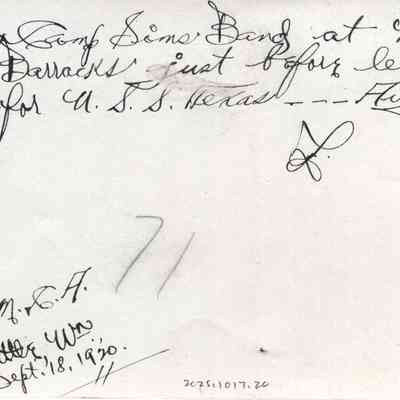 Camp Sims Band at
Barracks just before le
for U.S.S. Texas --- Au
L.
71
M.C.A.
ttle, Wn.,
Sept. 18, 1920.
2025.1017.20